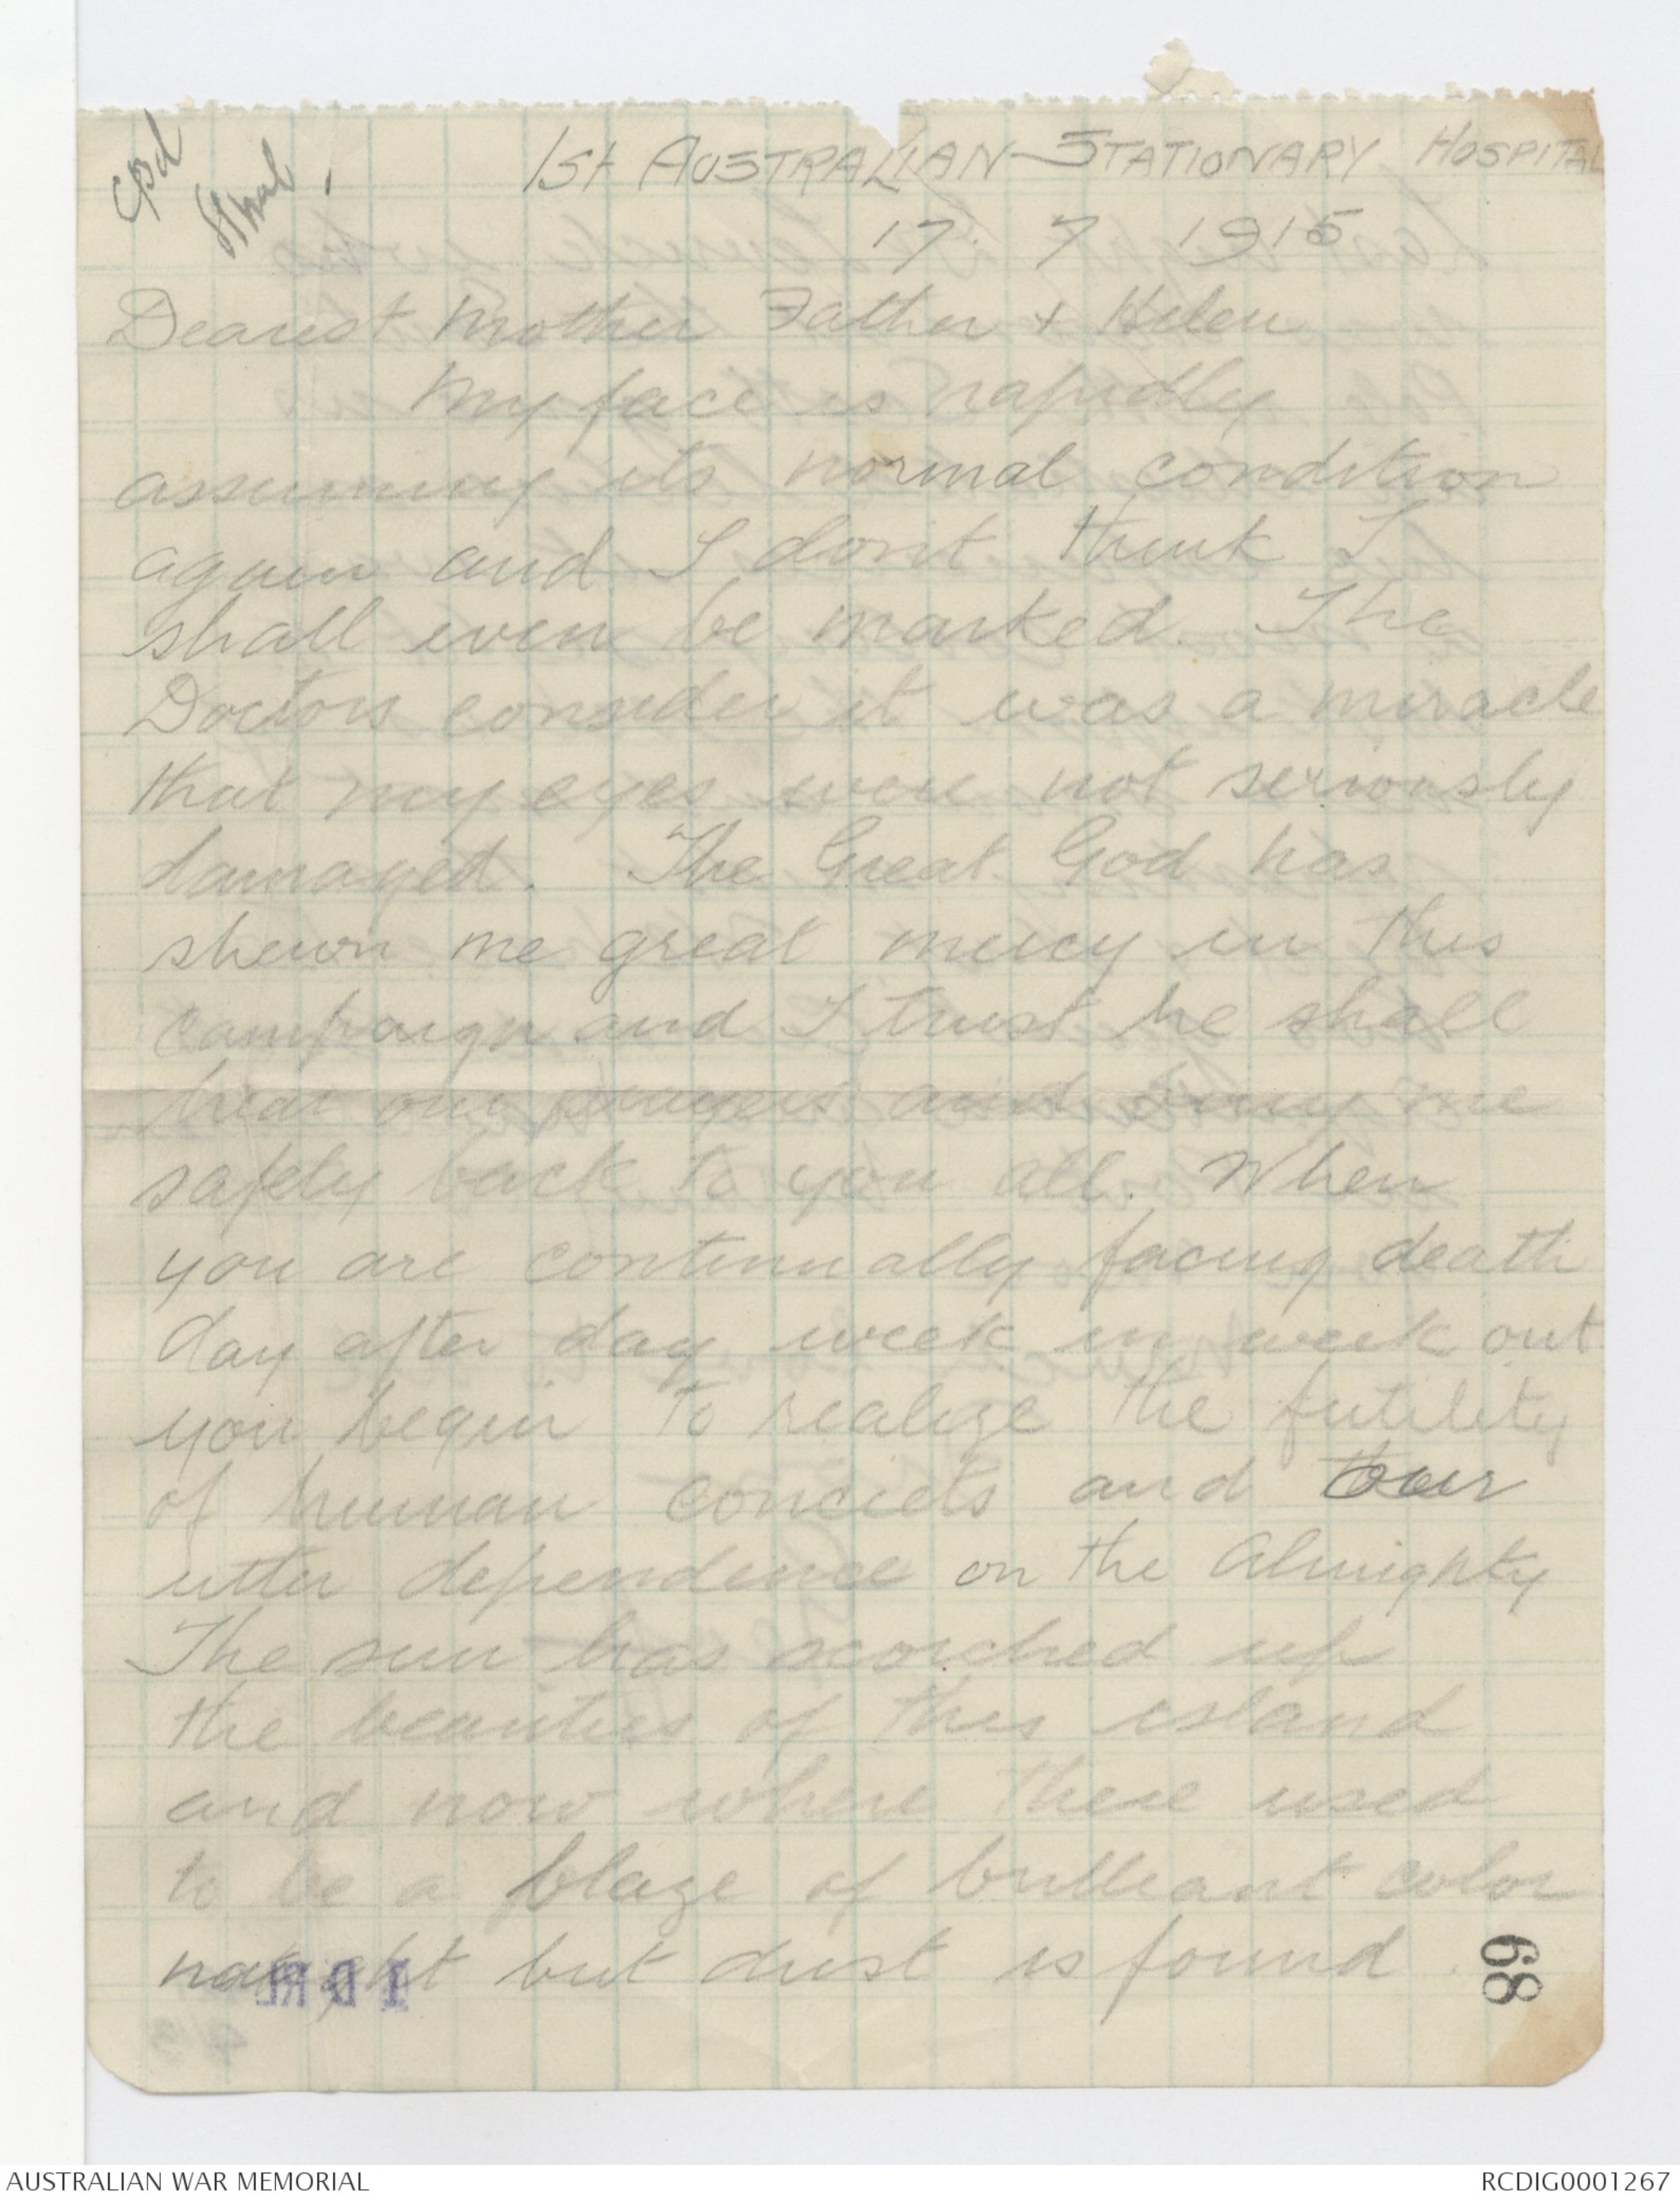 cpd
1st AUSTRALIAN STATIONARY HOSPITAL
17. 7 1915
Dearest Mother Father + Helen
My face is rapidly
assuming its normal condition
again and I don't think I
shall even be marked. The
Doctors consider it was a miracle
that my eyes were not seriously
damaged. The Great God has
shewn me great mercy in this
campaign and I trust he shall
hear our prayers and bring me
safely back to you all. When
you are continually facing death
day after day week in week out
you begin to realize the futility
of human conciets and our
utter dependence on the Almighty
The sun has scorched up
the beauties of this island
and now where there used
to be a blaze of brilliant color
naught but dust is found.
1 DRL
68
AUSTRALIAN WAR MEMORIAL
RCDIG0001267